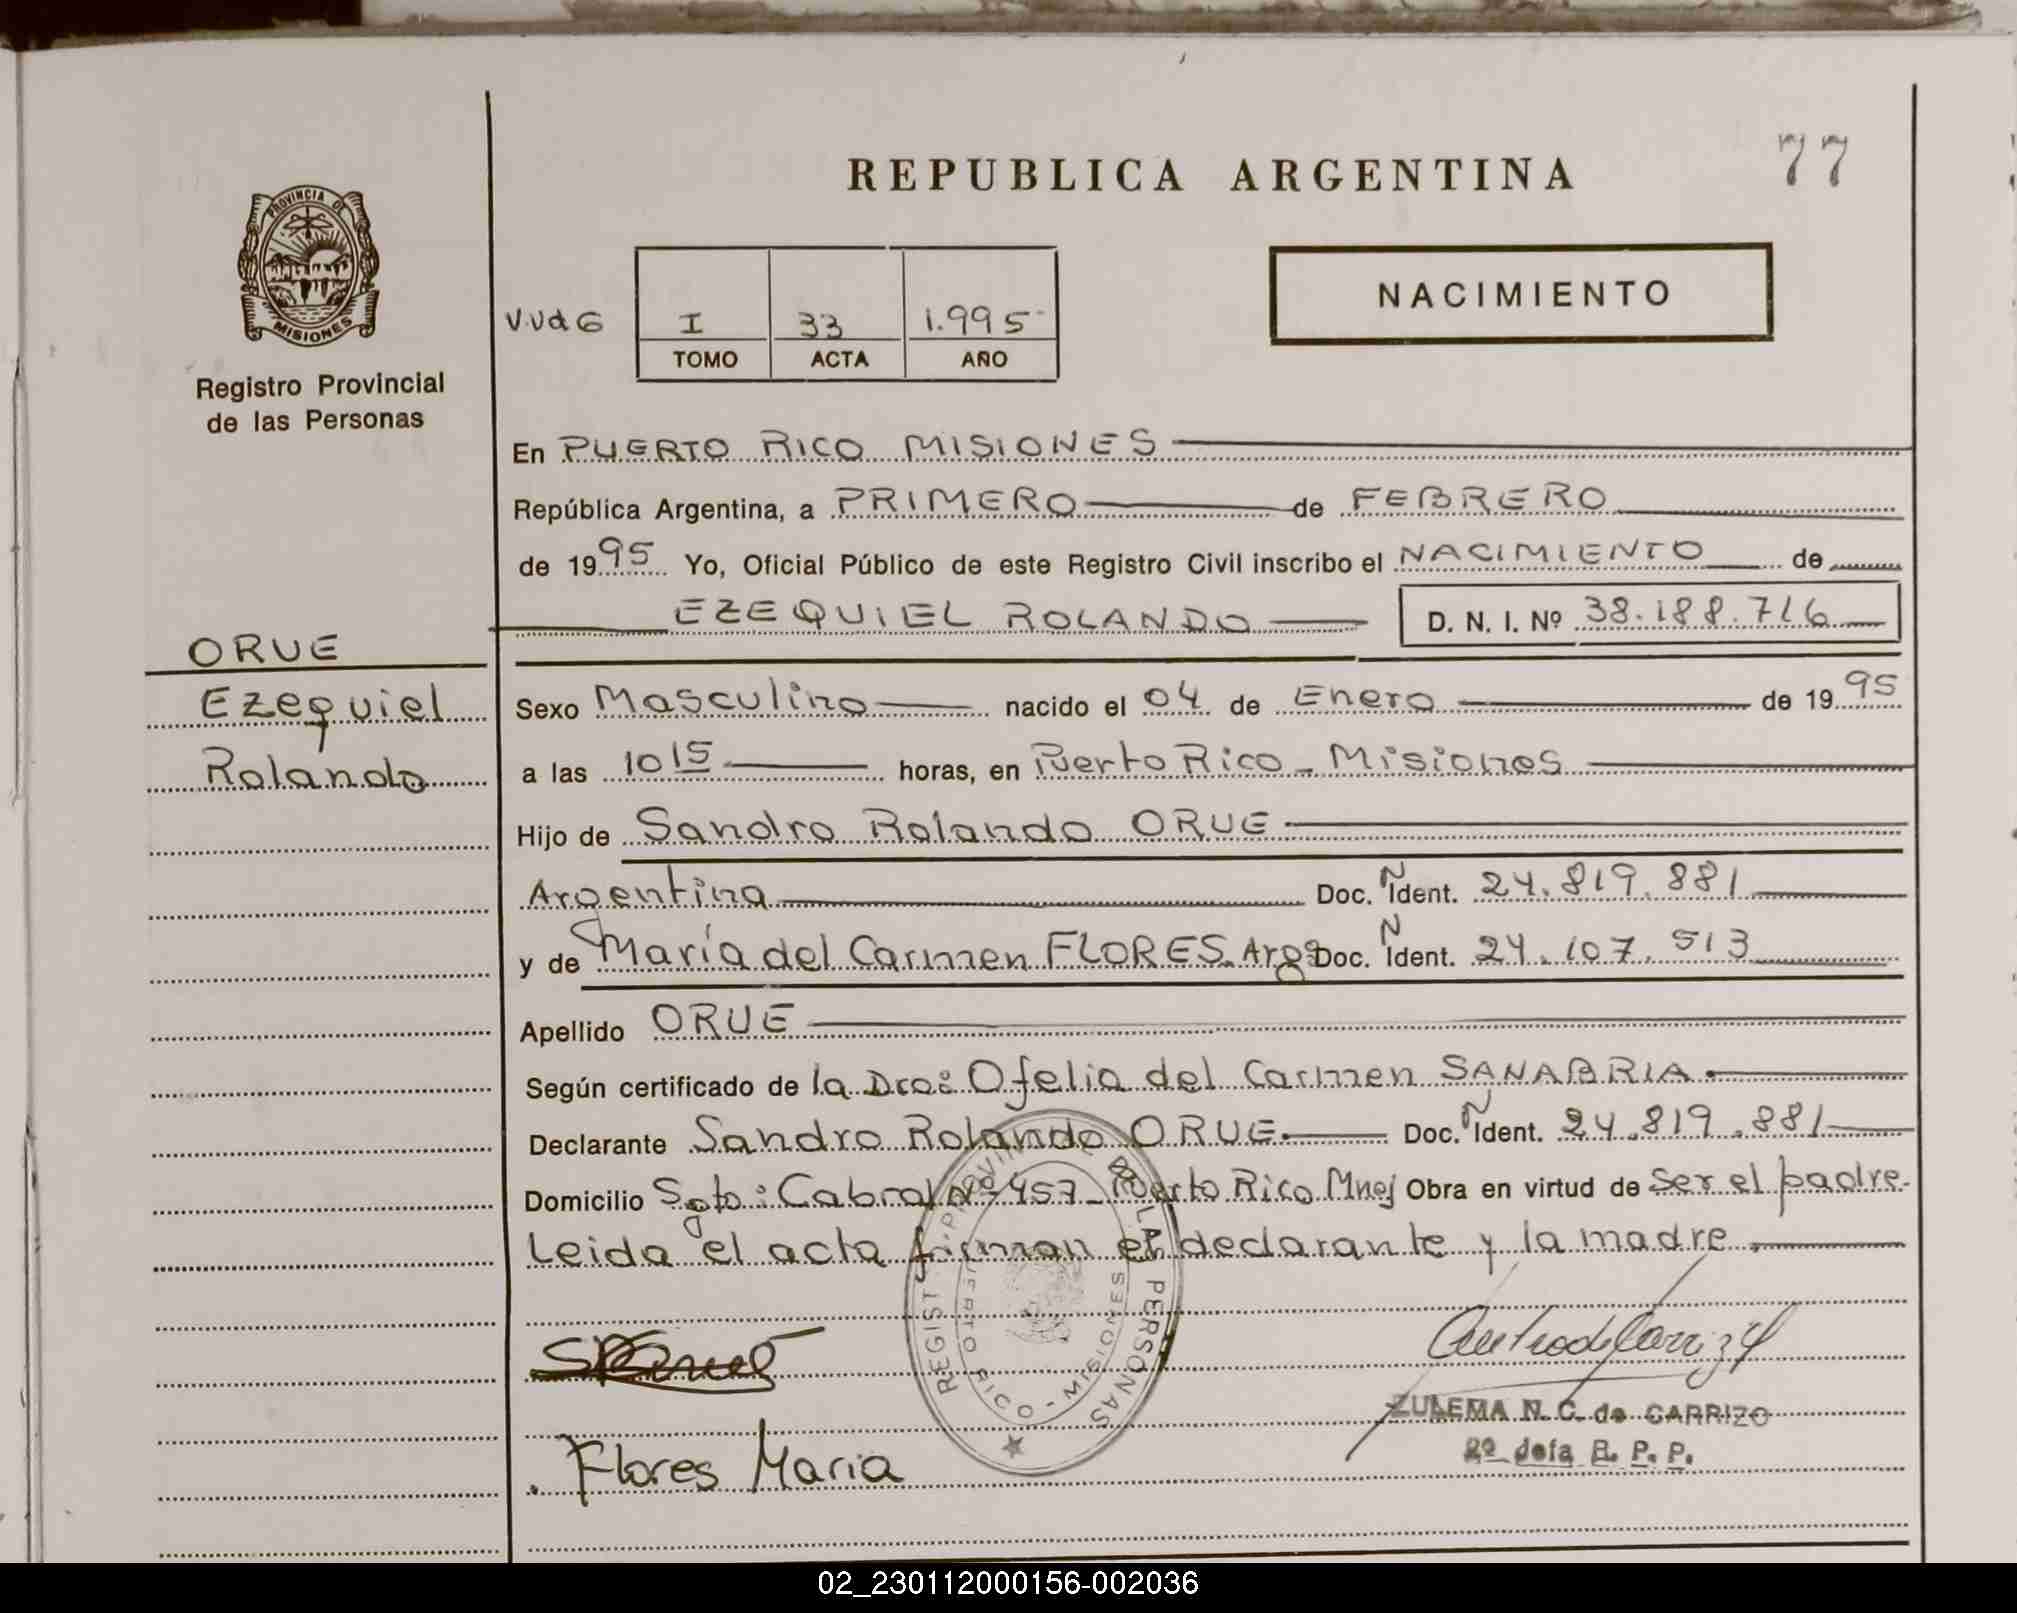 REPUBLICA ARGENTINA
77
PROVINCIA DE
MISIONES
Registro Provincial
de las Personas
V.Vd G
I 33 1.995
TOMO ACTA AÑO
NACIMIENTO
En PUERTO RICO MISIONES
República Argentina, a PRIMERO de FEBRERO
de 1995 Yo, Oficial Público de este Registro Civil inscribo el NACIMIENTO de
EZEQUIEL ROLANDO D. N. I. Nº 38.188.716
ORUE
Ezequiel
Rolando
Sexo Masculino nacido el 04 de Enero de 1995
a las 10 15 horas, en Puerto Rico - Misiones
Hijo de Sandro Rolando ORUE
Argentina Doc. N Ident. 24.819.881
y de María del Carmen FLORES. Arg. Doc. N Ident. 24.107.513
Apellido ORUE
Según certificado de la Dra: Ofelia del Carmen SANABRIA.
Declarante Sandro Rolando ORUE. Doc. N Ident. 24.819.881
Domicilio Sgto: Cabral Nº 457 - Puerto Rico Mnes Obra en virtud de Ser el padre.
Leida el acta firman el declarante y la madre.
REGIST. PROVIN. DE LAS PERSONAS
PUERTO RICO - MISIONES
ZULEMA N. C. de CARRIZO
2º Jefa R. P. P.
Flores Maria
02_230112000156-002036